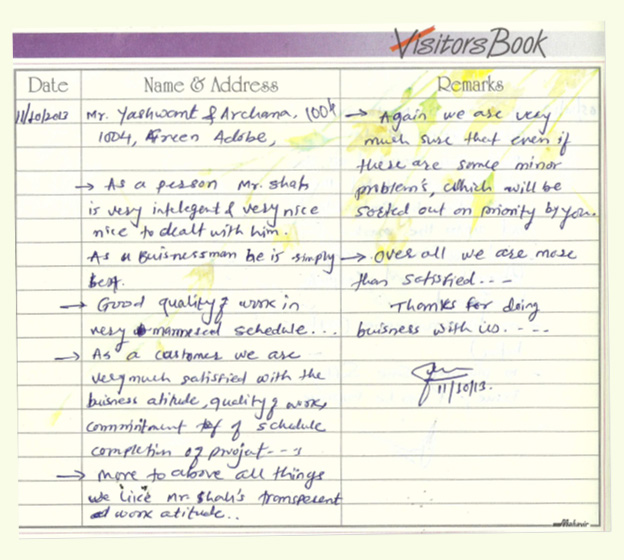 Visitors Book
Date
Name & Address
Remarks
11/10/2013
Mr. Yashwant & Archana, 1004
1004, Green Adobe,
→ As a person Mr. Shah
is very intelegent & very nice
nice to dealt with him.
As a Buisnessman he is simply
best.
→ Good quality of work in
very mannered schedule...
→ As a customer we are
very much satisfied with the
buisness atitude, quality of work,
commitment of schedule
completion of projat---s
→ More to above all things
we like Mr. Shah's transperent
work atitude..
→ Again we are very
much sure that even if
these are some minor
problem's, which will be
sorted out on priority by you.
→ Over all we are more
than satisfied...-
Thanks for doing
buisness with us.----
11/10/13.
Mahavir